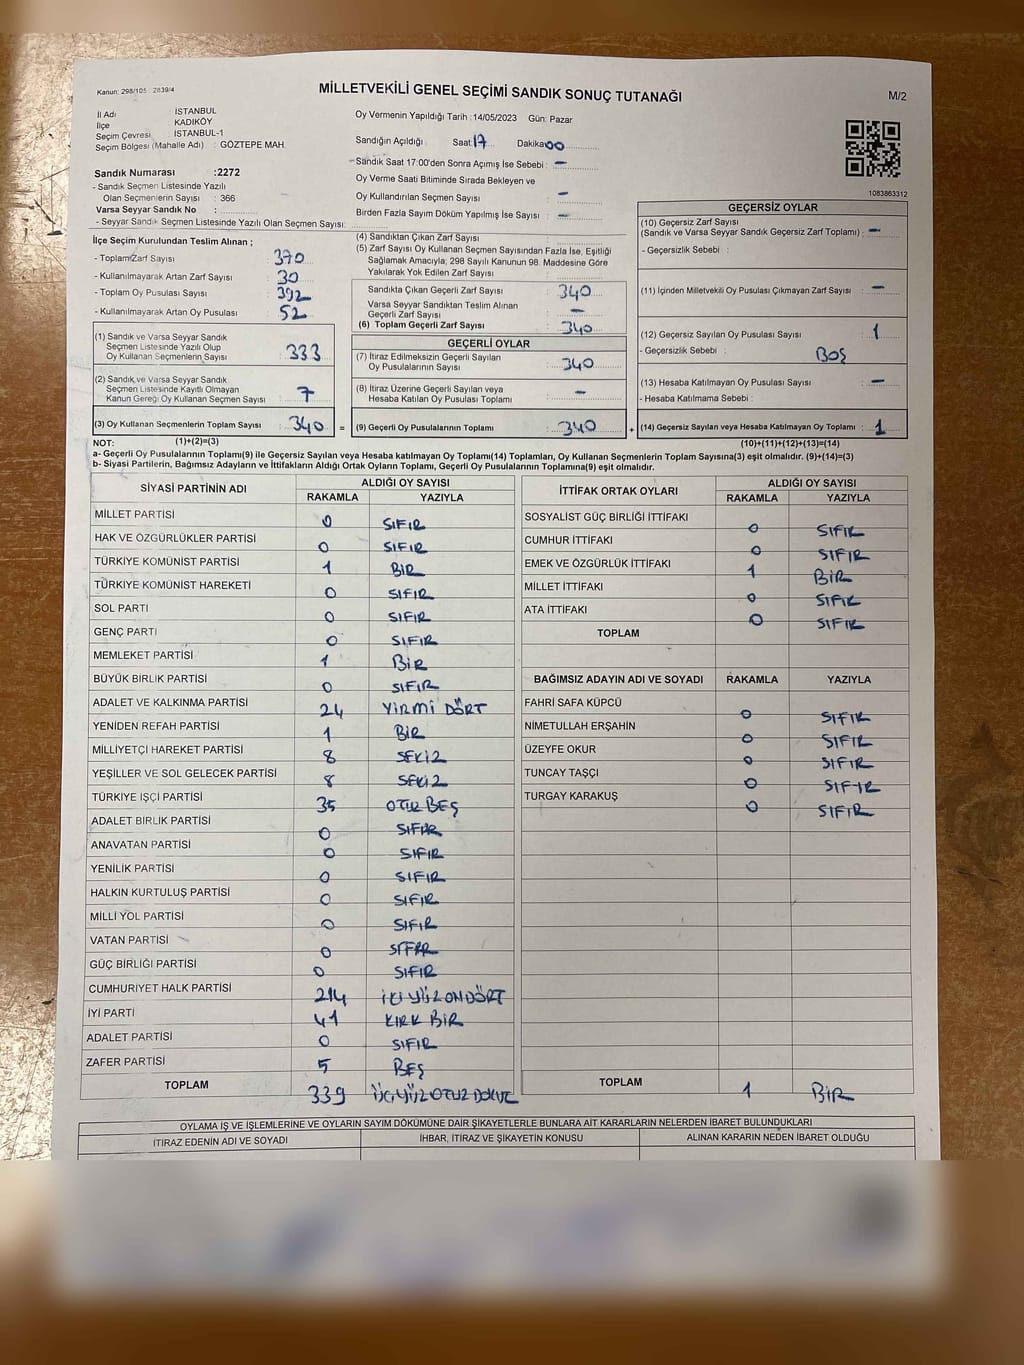 Kanun: 298/105 2839/4
MİLLETVEKİLİ GENEL SEÇİMİ SANDIK SONUÇ TUTANAĞI
M/2
İl Adı : İSTANBUL
İlçe : KADIKÖY
Seçim Çevresi : İSTANBUL-1
Seçim Bölgesi (Mahalle Adı) : GÖZTEPE MAH.
Oy Vermenin Yapıldığı Tarih :14/05/2023 Gün: Pazar
Sandığın Açıldığı Saat:17 Dakika:00
Sandık Saat 17:00'den Sonra Açımış İse Sebebi : –
Oy Verme Saati Bitiminde Sırada Bekleyen ve
Oy Kullandırılan Seçmen Sayısı : –
Birden Fazla Sayım Döküm Yapılmış İse Sayısı : –
1083863312
Sandık Numarası :2272
- Sandık Seçmen Listesinde Yazılı
Olan Seçmenlerin Sayısı : 366
Varsa Seyyar Sandık No :
- Seyyar Sandık Seçmen Listesinde Yazılı Olan Seçmen Sayısı:
İlçe Seçim Kurulundan Teslim Alınan ;
- Toplam Zarf Sayısı : 370
- Kullanılmayarak Artan Zarf Sayısı : 30
- Toplam Oy Pusulası Sayısı : 392
- Kullanılmayarak Artan Oy Pusulası : 52
(1) Sandık ve Varsa Seyyar Sandık
Seçmen Listesinde Yazılı Olup
Oy Kullanan Seçmenlerin Sayısı : 333
(2) Sandık ve Varsa Seyyar Sandık
Seçmen Listesinde Kayıtlı Olmayan
Kanun Gereği Oy Kullanan Seçmen Sayısı : 7
(3) Oy Kullanan Seçmenlerin Toplam Sayısı : 340 =
(4) Sandıktan Çıkan Zarf Sayısı :
(5) Zarf Sayısı Oy Kullanan Seçmen Sayısından Fazla İse, Eşitliği
Sağlamak Amacıyla; 298 Sayılı Kanunun 98. Maddesine Göre
Yakılarak Yok Edilen Zarf Sayısı :
Sandıkta Çıkan Geçerli Zarf Sayısı : 340
Varsa Seyyar Sandıktan Teslim Alınan
Geçerli Zarf Sayısı : –
(6) Toplam Geçerli Zarf Sayısı : 340
GEÇERLİ OYLAR
(7) İtiraz Edilmeksizin Geçerli Sayılan
Oy Pusulalarının Sayısı : 340
(8) İtiraz Üzerine Geçerli Sayılan veya
Hesaba Katılan Oy Pusulası Toplamı : –
(9) Geçerli Oy Pusulalarının Toplamı : 340 +
GEÇERSİZ OYLAR
(10) Geçersiz Zarf Sayısı
(Sandık ve Varsa Seyyar Sandık Geçersiz Zarf Toplamı) : –
- Geçersizlik Sebebi :
(11) İçinden Milletvekili Oy Pusulası Çıkmayan Zarf Sayısı : –
(12) Geçersiz Sayılan Oy Pusulası Sayısı : 1
- Geçersizlik Sebebi : BOŞ
(13) Hesaba Katılmayan Oy Pusulası Sayısı : –
- Hesaba Katılmama Sebebi :
(14) Geçersiz Sayılan veya Hesaba Katılmayan Oy Toplamı : 1
NOT: (1)+(2)=(3) (10)+(11)+(12)+(13)=(14)
a- Geçerli Oy Pusulalarının Toplamı(9) ile Geçersiz Sayılan veya Hesaba katılmayan Oy Toplamı(14) Toplamları, Oy Kullanan Seçmenlerin Toplam Sayısına(3) eşit olmalıdır. (9)+(14)=(3)
b- Siyasi Partilerin, Bağımsız Adayların ve İttifakların Aldığı Ortak Oyların Toplamı, Geçerli Oy Pusulalarının Toplamına(9) eşit olmalıdır.
SİYASİ PARTİNİN ADI ALDIĞI OY SAYISI
RAKAMLA YAZIYLA
MİLLET PARTİSİ 0 SIFIR
HAK VE ÖZGÜRLÜKLER PARTİSİ 0 SIFIR
TÜRKİYE KOMÜNİST PARTİSİ 1 BİR
TÜRKİYE KOMÜNİST HAREKETİ 0 SIFIR
SOL PARTİ 0 SIFIR
GENÇ PARTİ 0 SIFIR
MEMLEKET PARTİSİ 1 BİR
BÜYÜK BİRLİK PARTİSİ 0 SIFIR
ADALET VE KALKINMA PARTİSİ 24 YİRMİ DÖRT
YENİDEN REFAH PARTİSİ 1 BİR
MİLLİYETÇİ HAREKET PARTİSİ 8 SEKİZ
YEŞİLLER VE SOL GELECEK PARTİSİ 8 SEKİZ
TÜRKİYE İŞÇİ PARTİSİ 35 OTUZ BEŞ
ADALET BİRLİK PARTİSİ 0 SIFIR
ANAVATAN PARTİSİ 0 SIFIR
YENİLİK PARTİSİ 0 SIFIR
HALKIN KURTULUŞ PARTİSİ 0 SIFIR
MİLLİ YOL PARTİSİ 0 SIFIR
VATAN PARTİSİ 0 SIFIR
GÜÇ BİRLİĞİ PARTİSİ 0 SIFIR
CUMHURİYET HALK PARTİSİ 214 İKİ YÜZ ONDÖRT
İYİ PARTİ 41 KIRK BİR
ADALET PARTİSİ 0 SIFIR
ZAFER PARTİSİ 5 BEŞ
TOPLAM 339 ÜÇYÜZ OTUZ DOKUZ
İTTİFAK ORTAK OYLARI ALDIĞI OY SAYISI
RAKAMLA YAZIYLA
SOSYALİST GÜÇ BİRLİĞİ İTTİFAKI 0 SIFIR
CUMHUR İTTİFAKI 0 SIFIR
EMEK VE ÖZGÜRLÜK İTTİFAKI 1 BİR
MİLLET İTTİFAKI 0 SIFIR
ATA İTTİFAKI 0 SIFIR
TOPLAM
BAĞIMSIZ ADAYIN ADI VE SOYADI RAKAMLA YAZIYLA
FAHRİ SAFA KÜPCÜ 0 SIFIR
NİMETULLAH ERŞAHİN 0 SIFIR
ÜZEYFE OKUR 0 SIFIR
TUNCAY TAŞÇI 0 SIFIR
TURGAY KARAKUŞ 0 SIFIR
TOPLAM 1 BİR
OYLAMA İŞ VE İŞLEMLERİNE VE OYLARIN SAYIM DÖKÜMÜNE DAİR ŞİKAYETLERLE BUNLARA AİT KARARLARIN NELERDEN İBARET BULUNDUKLARI
İTİRAZ EDENİN ADI VE SOYADI İHBAR, İTİRAZ VE ŞİKAYETİN KONUSU ALINAN KARARIN NEDEN İBARET OLDUĞU